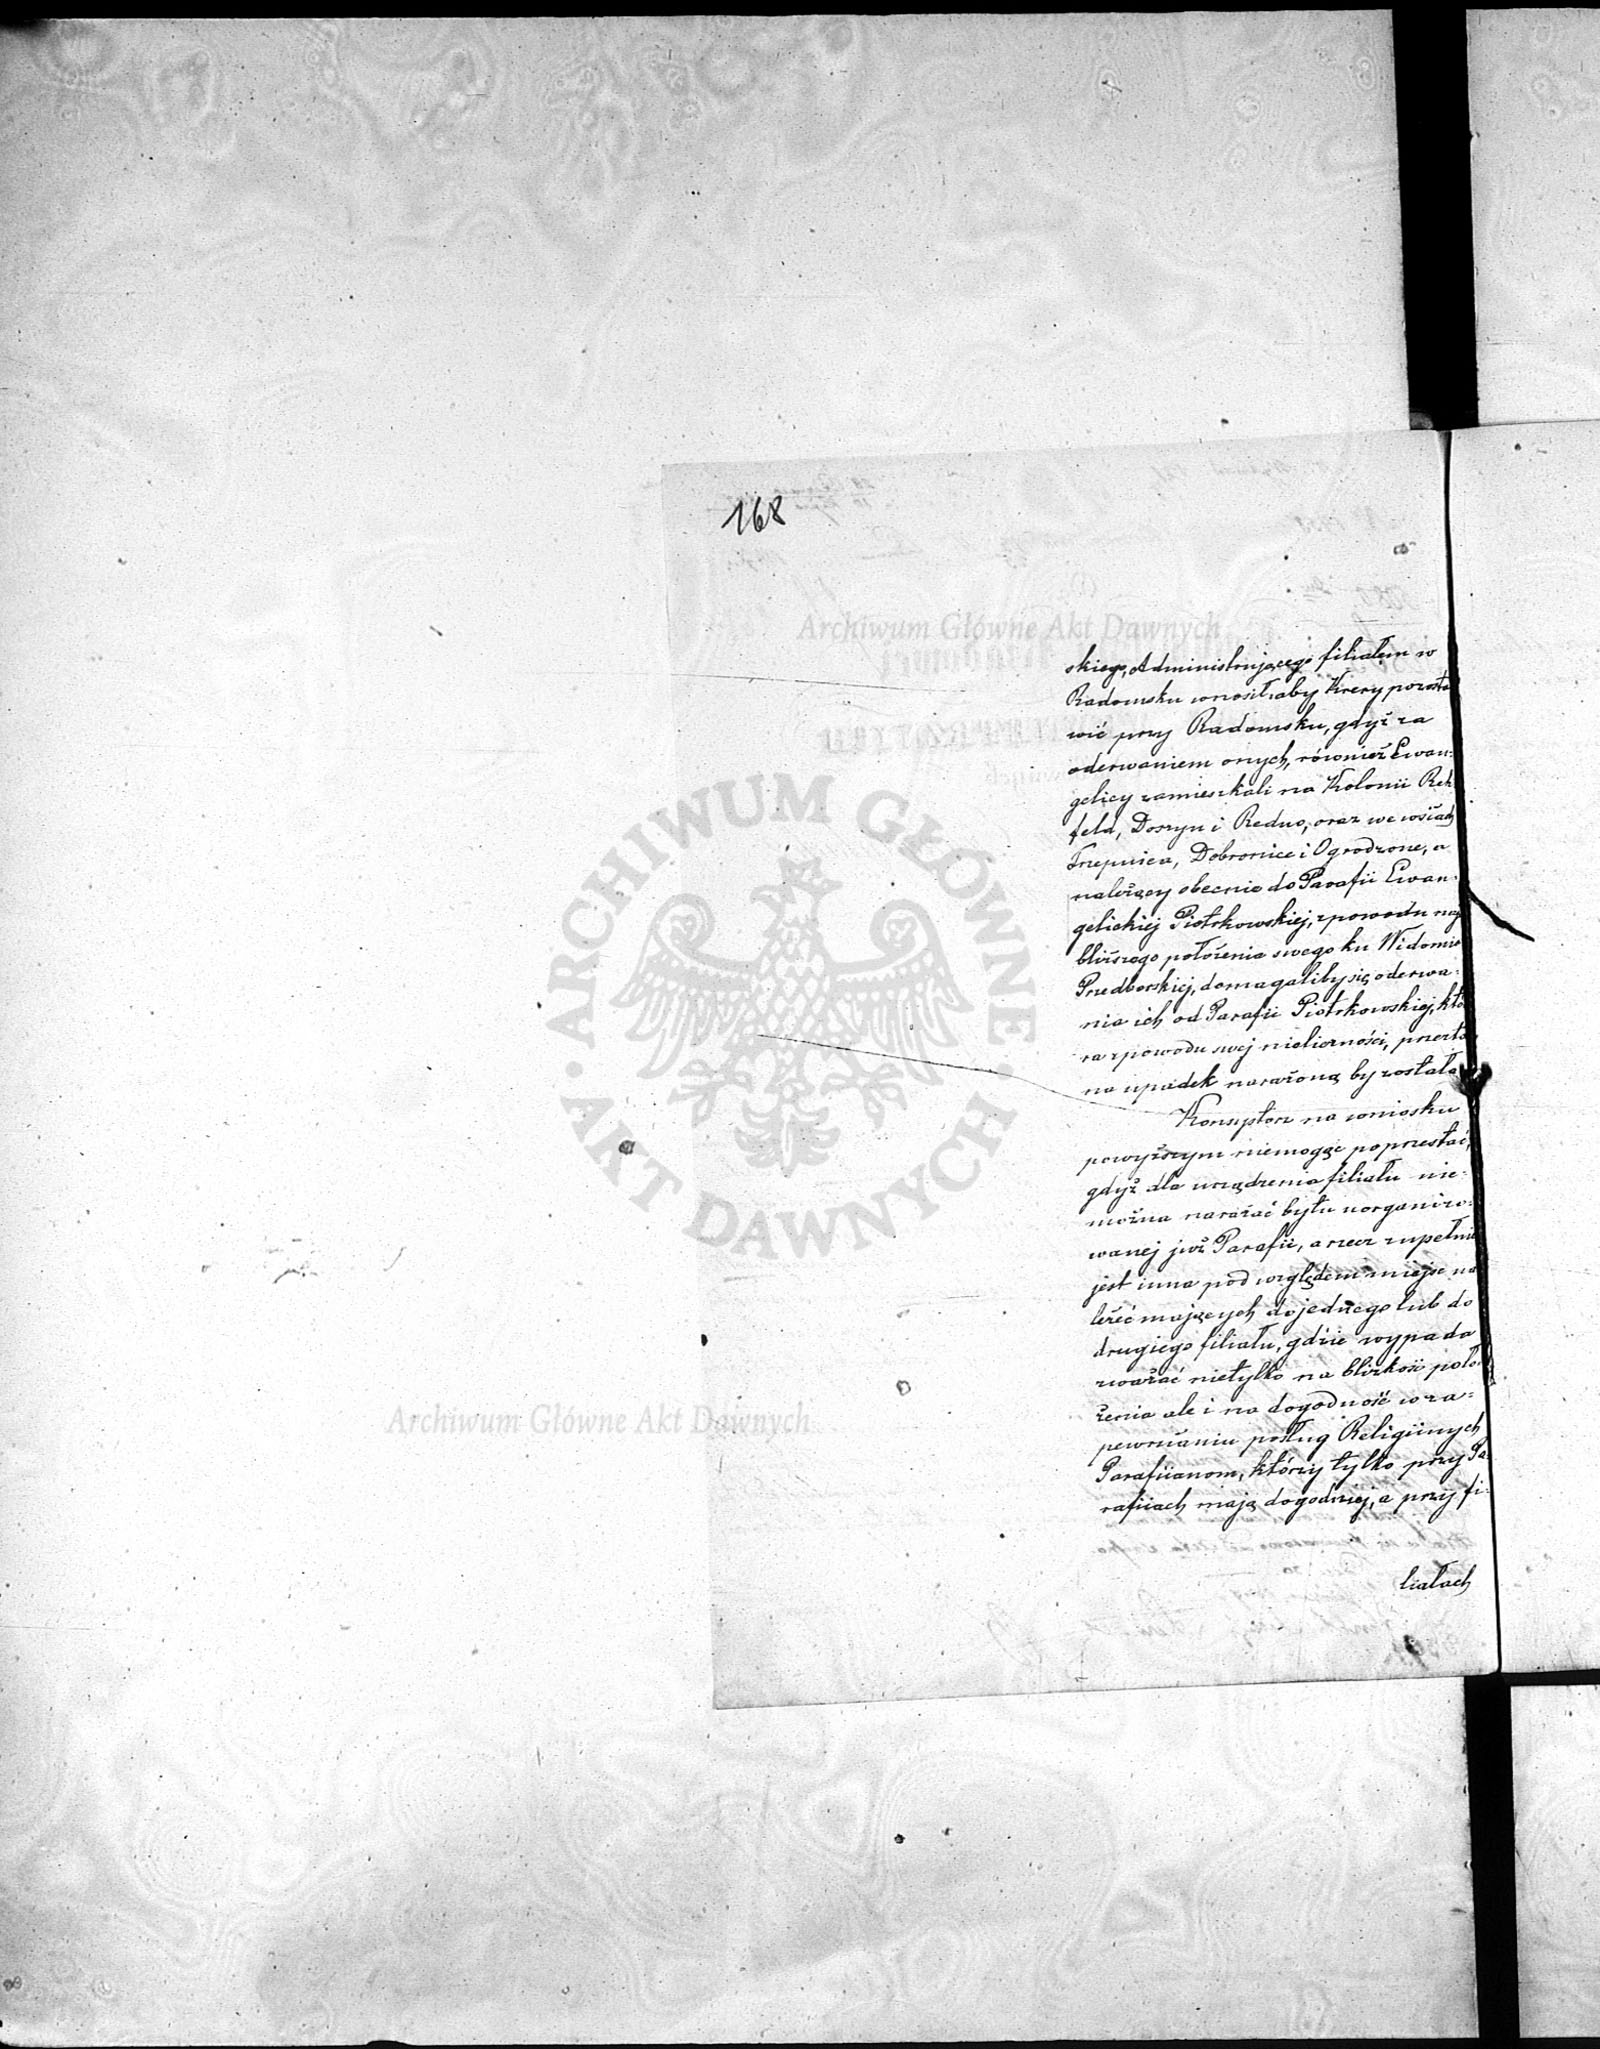 168
Archiwum Główne Akt Dawnych
skiego, Administrującego filiałem w
Radomsku wnosił, aby Krery pozosta
wić przy Radomsku, gdyż za
oderwaniem onych, również Ewan-
gelicy zamieszkali na Kolonii Reh
feld, Doszyn i Redno, oraz we wsiach
Trzepnica, Dobronice i Ogrodzone, a
należący obecnie do Parafii Ewan-
gelickiéj Piotrkowskiej, z powodu naj
bliższego położenia swego ku Widomie
Przedborskiej, domagaliby się oderwa-
nia ich od Parafii Piotrkowskiej, któ
ra z powodu swej nieliczności, przeto
na upadek narażoną by została
Konsystorz na wniosku
powyższym niemogąc poprzestać,
gdyż dla urządzenia filiału nie-
można narażać bytu uorganizo-
wanej już Parafii, a rzecz zupełnie
jest inna pod względem miejsc na
leżéć mających do jednego lub do
drugiego filiału, gdzie wypada
zważać nietylko na blizkość poło-
żenia ale i na dogodność w za-
pewnianiu posług Religiinych
Parafiianom, którzy tylko przy Pa-
rafiiach mają dogodniej, a przy fi-
liałach
ARCHIWUM GŁÓWNE • AKT DAWNYCH •
Archiwum Główne Akt Dawnych